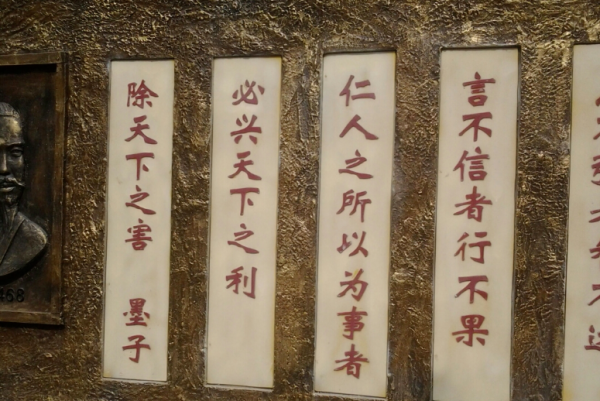 言不信者行不果
仁人之所以为事者
必兴天下之利
除天下之害 墨子
468